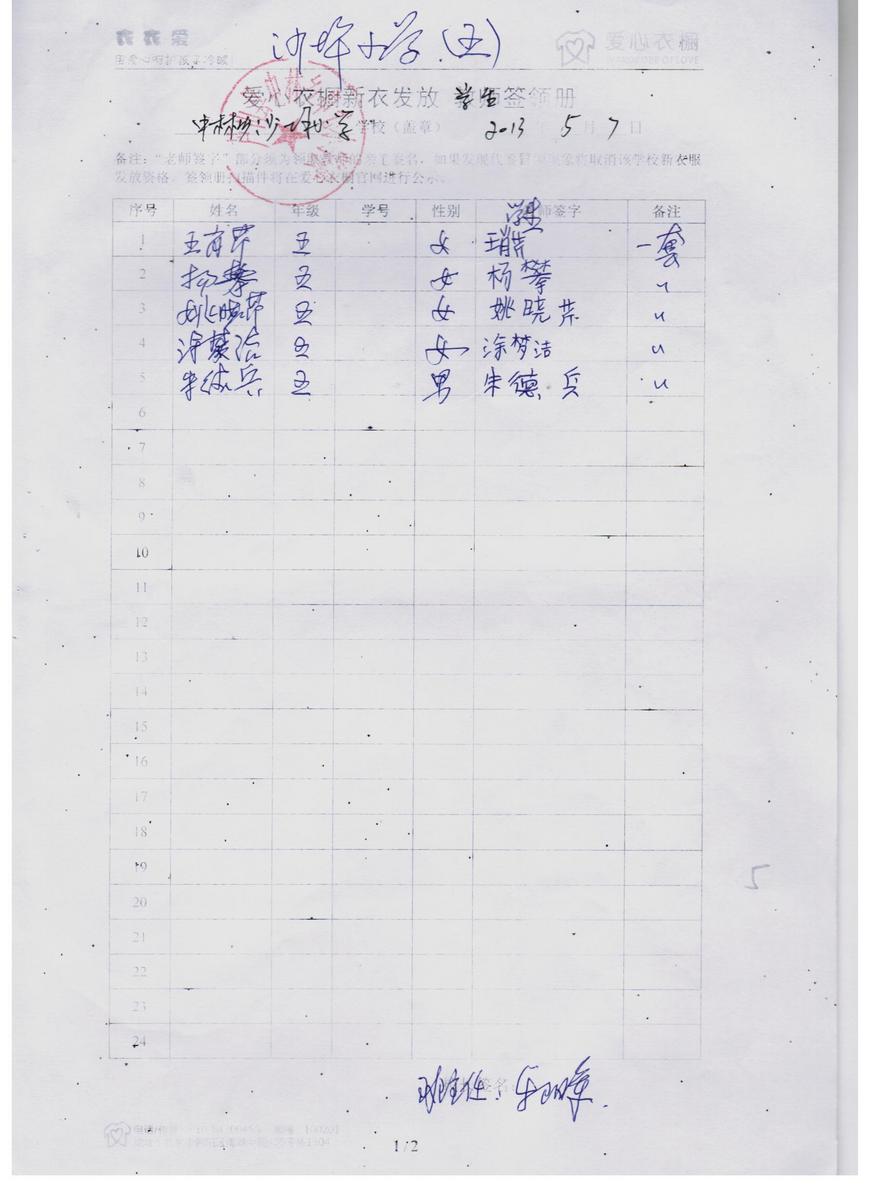 衣衣爱
沙坪小学(五)
爱心衣橱
WARDROBE OF LOVE
爱心衣橱新衣发放 学生签领册
沙坪小学 学校（盖章） 2013 年 5 月 7 日
备注：“老师签字”部分须为领取老师的亲笔签名，如果发现代签冒领现象将取消该学校新衣服
发放资格。签领册扫描件将在爱心衣橱官网进行公示。
序号 姓名 年级 学号 性别 学生 师签字 备注
1 五 女 一套
2 杨攀 五 女 杨攀 〃
3 姚晓芹 五 女 姚晓芹 〃
4 涂梦洁 五 女 涂梦洁 〃
5 朱德兵 五 男 朱德兵 〃
6
7
8
9
10
11
12
13
14
15
16
17
18
19
20
21
22
23
24
5
班主任：
1/2